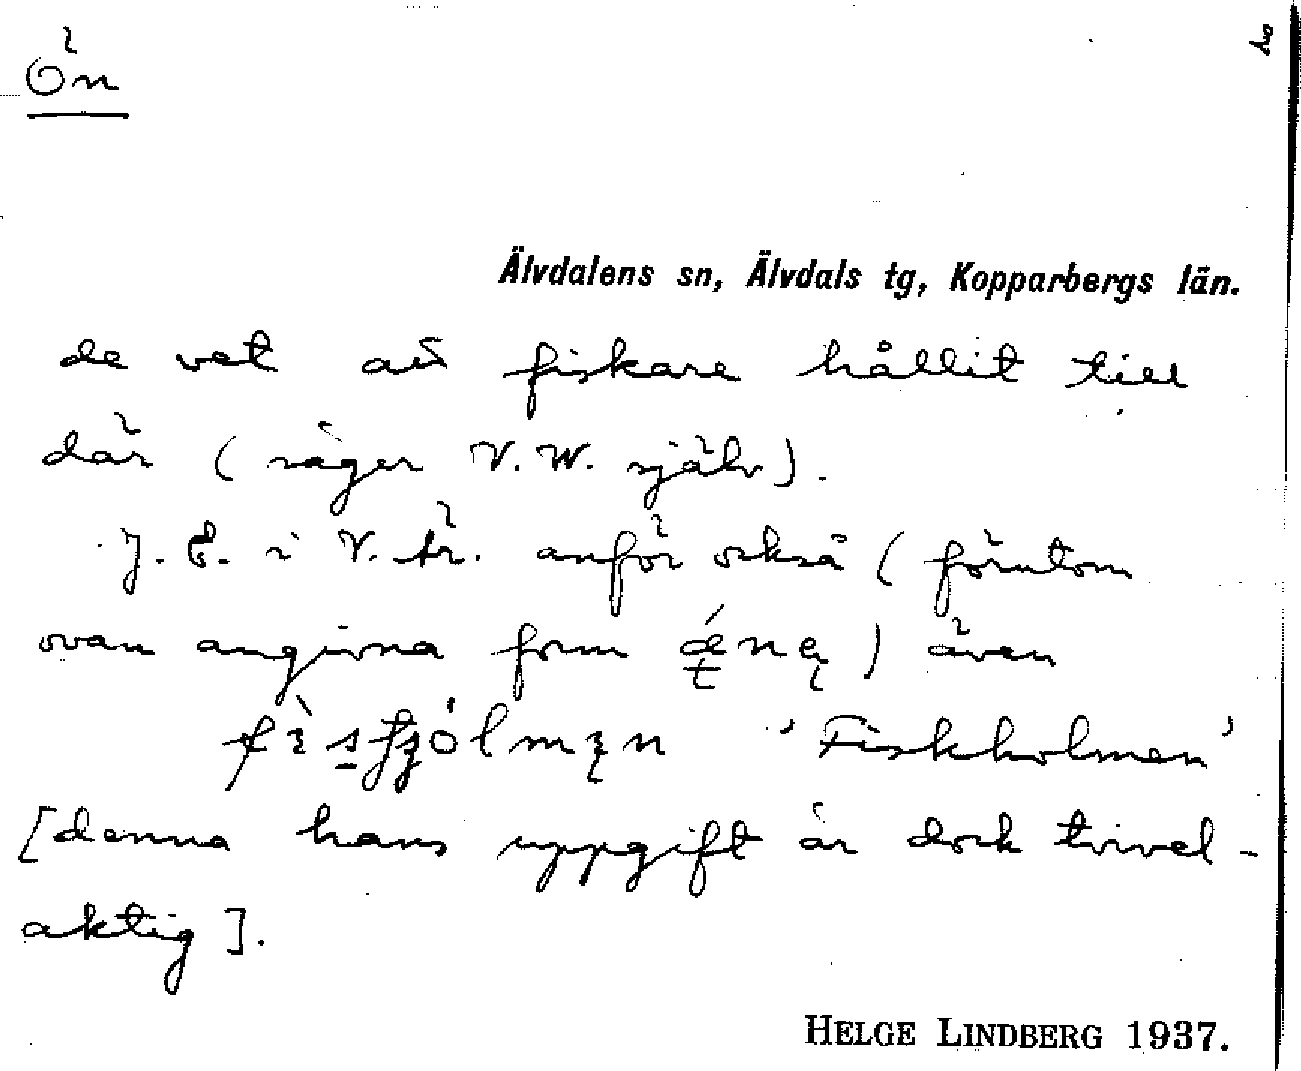 Ön
Älvdalens sn, Älvdals tg, Kopparbergs län.
de vet att fiskare hållit till
där (säger V. W. själv).
J. E. i V. är. anför också (förutom
ovan angivna form ) även
'Fiskholmen'
[denna hans uppgift är dock tvivel-
aktig].
HELGE LINDBERG 1937.